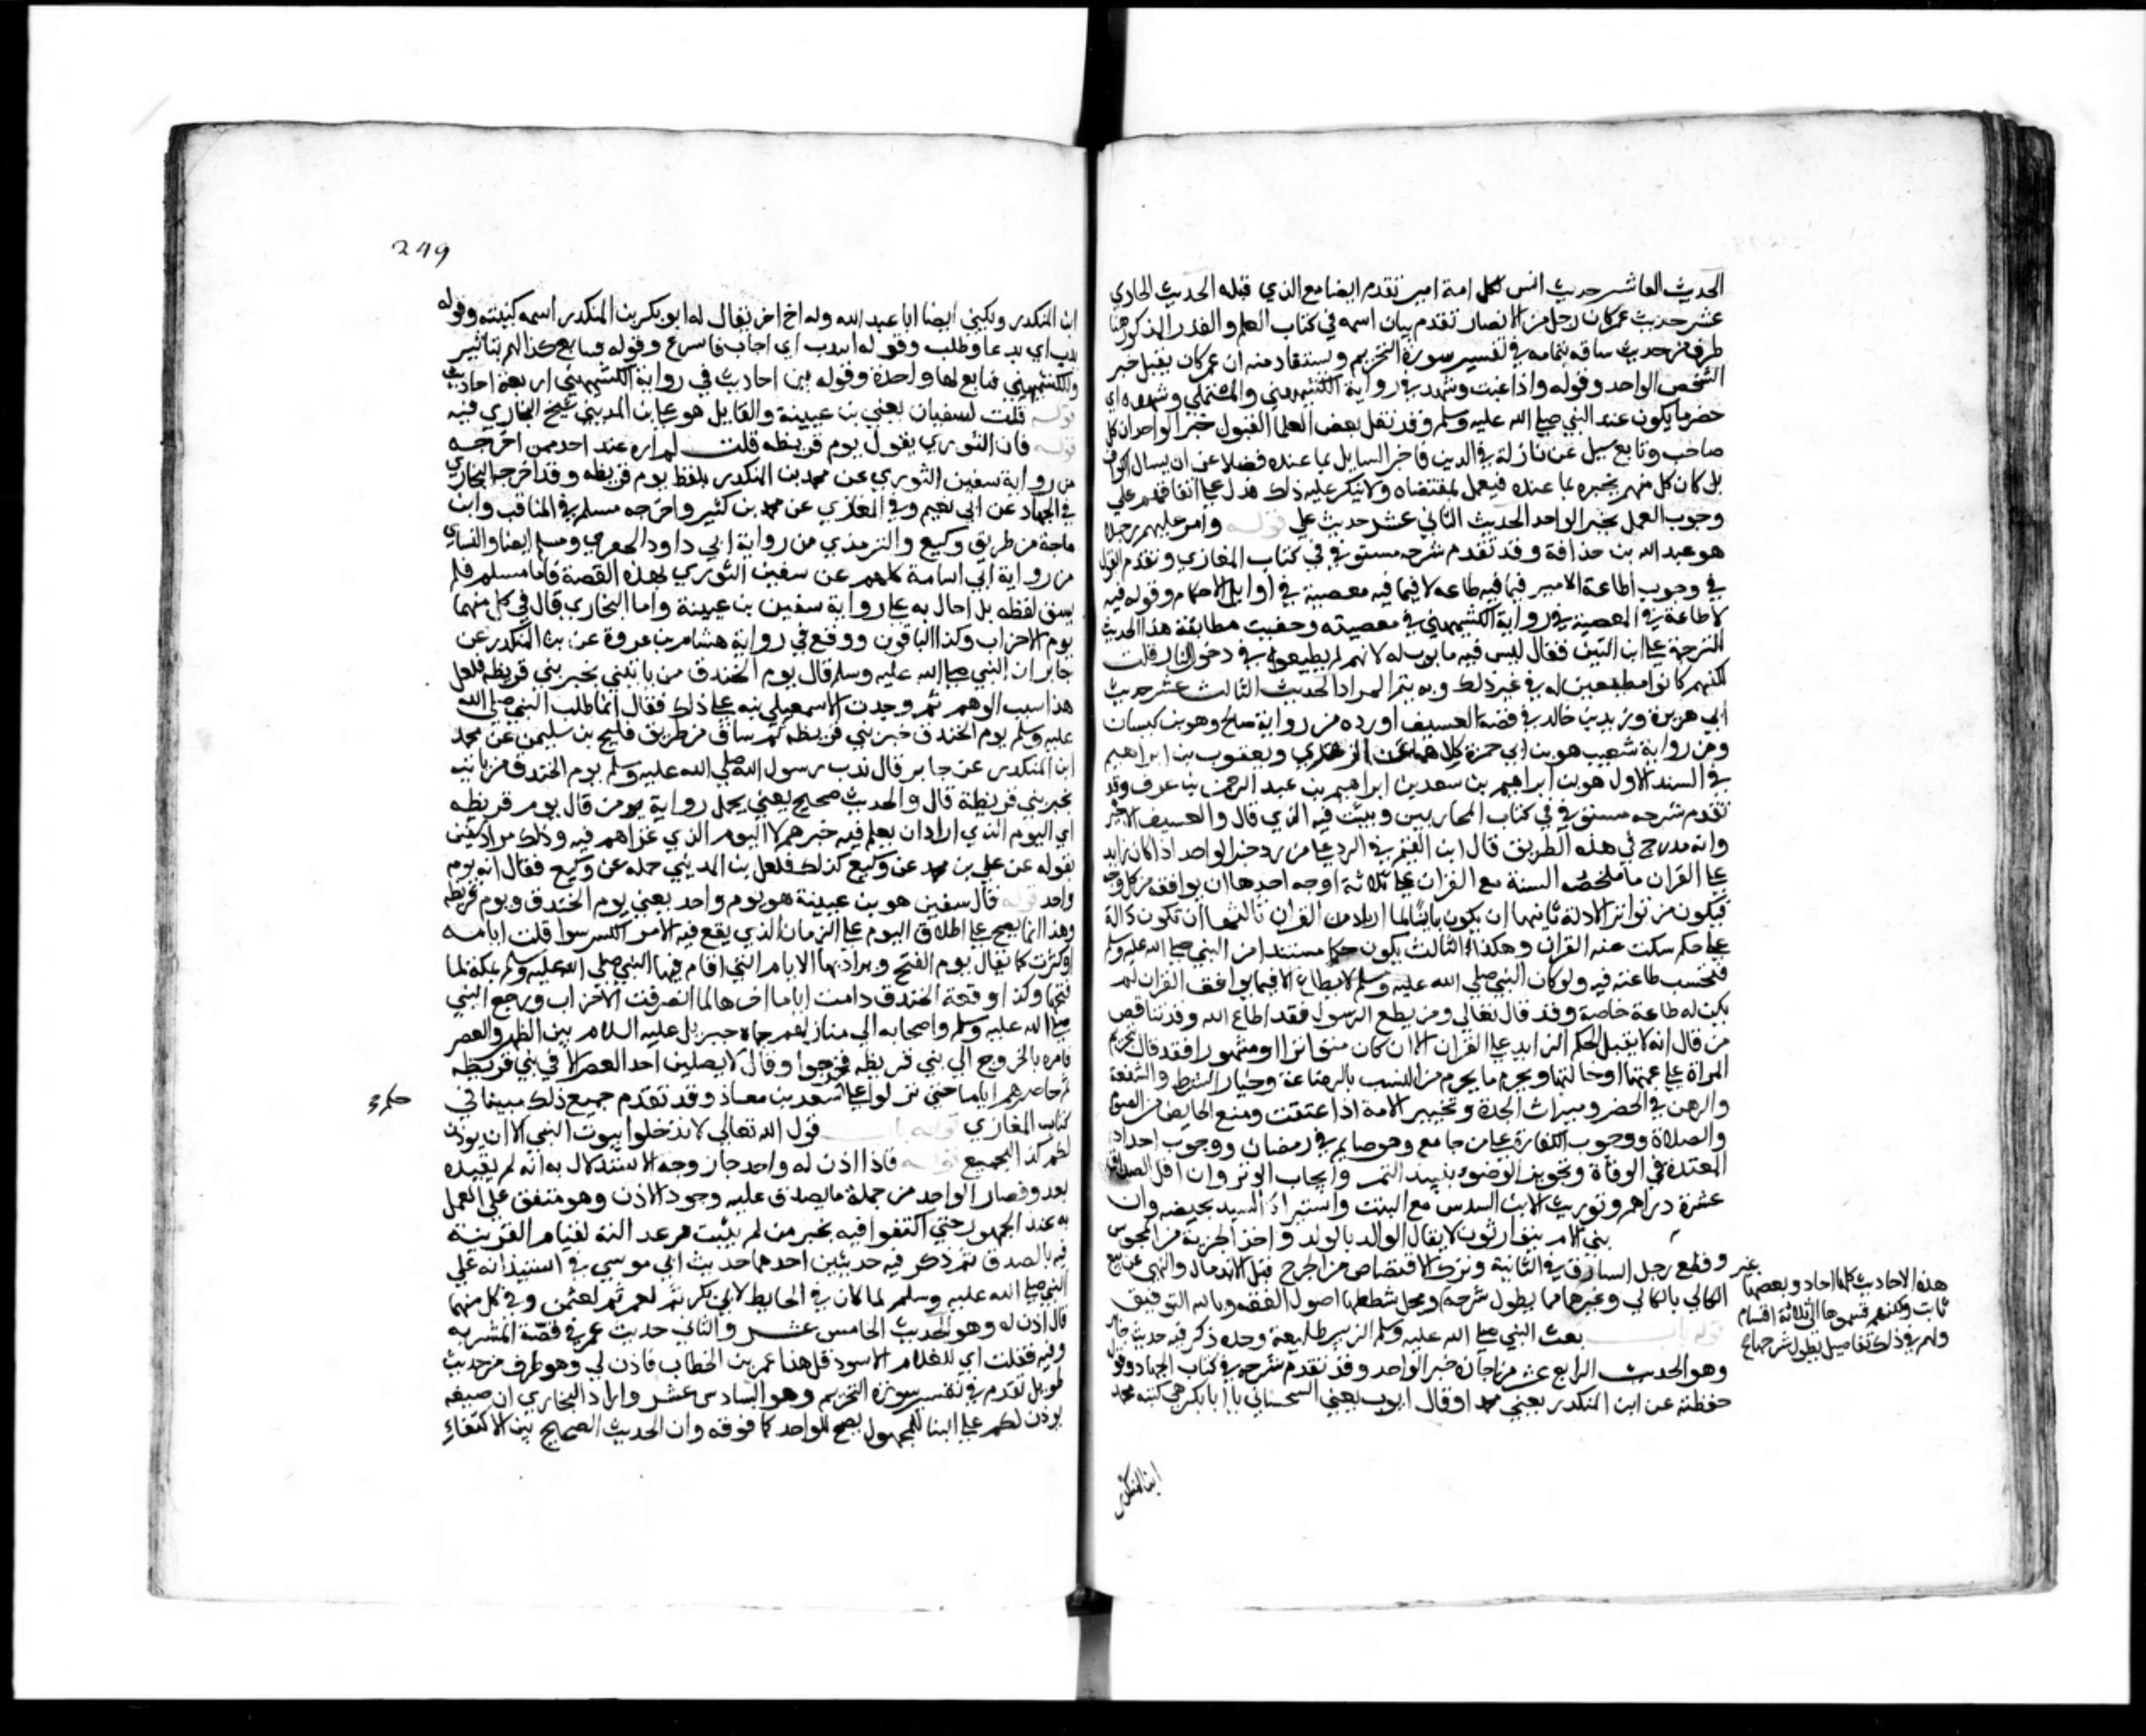 الحديث العاشر حديث انس لكل امة امين تقدم ايضا مع الذي قبله الحديث الحادي
عشر حديث عمر كان رجل من الانصار تقدم بيان اسمه في كتاب العلم والقدر المذكور هنا
طرف من حديث ساقه بتمامه في تفسير سورة التحريم ويستفاد منه ان عمر كان يقبل خبر
الشخص الواحد وقوله واذا غبت وشهد في رواية الكشميهني والمستملي وشهده اي
حضر ما يكون عند النبي صلي الله عليه وسلم وقد نقل بعض العلما القبول خبر الواحد ان كل
صاحب وتابع سيل عن نازلة في الدين فاخبر السايل بما عنده فضلا عن ان يسال
بل كان كل منهم يخبره بما عنده فيعمل بمقتضاه ولا ينكر عليه ذلك فدل علي اتفاقهم علي
وجوب العمل بخبر الواحد الحديث الثاني عشر حديث علي قوله وامر عليهم رجلا
هو عبد الله بن حذافة وقد تقدم شرحه مستوفي في كتاب المغازي وتقدم القول
في وجوب اطاعة الامير فيما فيه طاعه لا فيما فيه معصية في اوايل الاحكام وقوله فيه
لا طاعة في المعصية في رواية الكشميهني في معصيته وخفيت مطابقة هذا الحديث
الترجمة علي ابن التين فقال ليس فيه ما بوب له لانهم لم يطيعوه في دخول النار قلت
لكنهم كانوا مطيعين له في غير ذلك وبه يتم المراد الحديث الثالث عشر حديث
ابي هريرة وزيد بن خالد في قصة العسيف اورده من رواية صالح وهو بن كيسان
ومن رواية شعيب هو بن ابي حمزة كلاهما عن الزهري ويعقوب بن ابراهيم
في السند الاول هو بن ابراهيم بن سعد بن ابراهيم بن عبد الرحمن بن عوف وقد
تقدم شرحه مستوفي في كتاب المحاربين وبينت فيه الذي قال والعسيف الاجير
وانه مدرج في هذه الطريق قال ابن القيم في الرد علي من رد خبر الواحد اذا كان زايد
علي القران ما ملخصه السنة مع القران علي ثلاثة اوجه احدها ان يوافقه من كل وجه
فيكون من تواتر الادلة ثانيها ان يكون بيانا لما اريد من القران ثالثها ان تكون دالة
علي حكم سكت عنه القران وهذا الثالث يكون حكما مستندا من النبي صلي الله عليه وسلم
فتحسب طاعته فيه ولو كان النبي صلي الله عليه وسلم لا يطاع الا فيما يوافق القران لم
يكن له طاعة خاصة وقد قال تعالي ومن يطع الرسول فقد اطاع الله وقد تناقض
من قال انه لا يقبل الحكم الزايد علي القران الا ان كان متواترا او مشهورا فقد قال بتحريم
المراة علي عمتها او خالتها وبحرم ما يحرم من النسب بالرضاعة وخيار الشرط والشفعة
والرهن في الحضر وميراث الجدة وتخيير الامة اذا عتقت ومنع الحايض من الصوم
والصلاة ووجوب الكفارة علي من جامع وهو صايم في رمضان ووجوب احداد
المعتدة في الوفاة وتجويز الوضوء بنبيذ التمر وايجاب الوتر وان اقل الصداق
عشرة دراهم وتوريث الابن السدس مع البنت واستبراء السبيه بحيضه وان
بني الام يتوارثون لا يقال الوالد بالولد واخذ الجزية من المجوس
وقطع رجل السارق في الثانية وترك الاقتصاص من الجرح قبل الاندمال والنهي عن بيع
الكالي بالكالي وغيرها مما يطول شرحه ومحل شطعها اصول الفقه وبالله التوفيق
قوله باب بعث النبي صلي الله عليه وسلم الزبير طليعة وحده ذكر فيه حديث جابر
وهو الحديث الرابع عشر من اجازة خبر الواحد وقد تقدم شرحه في كتاب الجهاد وقوله
حفظته عن ابن المنكدر يعني محمد او قال ايوب يعني السختياني يا ابا بكر هي كنيته محمد
هذه الاحاديث كلها احاد وبعضها غير
ثابت ولكنهم قسموها الي ثلاثة اقسام
ولهم في ذلك تفاصيل يطول شرحها
ابن المنكدر
249
ابن المنكدر ويكني ايضا ابا عبد الله وله اخ اخر يقال له ابو بكر بن المنكدر اسمه كنيته وقوله
ندب اي دعا وطلب وقوله انتدب اي اجاب فاسرع وقوله فتابع كذا لهم بتاثير
وللكشميهني فتابع لها واحدة وقوله بين احاديث في رواية الكشميهني اربعة احاديث
قوله قلت لسفيان يعني بن عيينة والقايل هو علي بن المديني شيخ البخاري فيه
قوله فان الثوري يقول يوم قريظه قلت لم اره عند احد ممن اخرجه
من رواية سفين الثوري عن محمد بن المنكدر بلفظ يوم قريظه وقد اخرجه البخاري
في الجهاد عن ابي نعيم وفي المغازي عن محمد بن كثير واخرجه مسلم في المناقب وابن
ماجة من طريق وكيع والترمذي من رواية ابي داود الحفري ومسلم ايضا والنساي
من رواية ابي اسامة كلهم عن سفين الثوري لهذه القصة فاما مسلم فلم
يسق لفظه بل احال به علي رواية سفين بن عيينة واما البخاري قال في كل منهما
يوم الاحزاب وكذا الباقون ووقع في رواية هشام بن عروة عن بن المنكدر عن
جابر ان النبي صلي الله عليه وسلم قال يوم الخندق من ياتيني بخبر بني قريظه فلعل
هذا سبب الوهم ثم وجدت الاسمعيلي نبه علي ذلك فقال انما طلب النبي صلي الله
عليه وسلم يوم الخندق خبر بني قريظه ثم ساق من طريق فليح بن سليمن عن محمد
ابن المنكدر عن جابر قال ندب رسول الله صلي الله عليه وسلم يوم الخندق من ياتيه
بخبر بني قريظة قال والحديث صحيح يعني يحمل رواية من قال يوم قريظه
اي اليوم الذي اراد ان يعلم فيه خبرهم لا اليوم الذي غزاهم فيه وذلك مراد سفين
بقوله عن علي بن محمد عن وكيع كذلك فلعل بن المديني حمله عن وكيع فقال انه يوم
واحد قوله قال سفين هو بن عيينة هو يوم واحد يعني يوم الخندق ويوم قريظه
وهذا انما يصح علي اطلاق اليوم علي الزمان الذي يقع فيه الامر الكبير سوا قلت ايامه
او كثرت كما يقال يوم الفتح ويراد بها الايام التي اقام فيها النبي صلي الله عليه وسلم بمكة لما
فتحها وكذا وقعة الخندق دامت اياما اخرها لما انصرفت الاحزاب ورجع النبي
صلي الله عليه وسلم واصحابه الي منازلهم جاه جبريل عليه السلام بين الظهر والعصر
فامره بالخروج الي بني قريظه فخرجوا وقال لا يصلين احد العصر الا في بني قريظه
ثم حاصرهم اياما حتي نزلوا علي سعد بن معاذ وقد تقدم جميع ذلك مبينا في
حكم
كتاب المغازي قوله باب قول الله تعالي لا تدخلوا بيوت النبي الا ان يوذن
لكم كذا للجميع قوله فاذا اذن له واحد جاز وجه الاستدلال به انه لم يقيده
بعدد فصار الواحد من جملة ما يصدق عليه وجود الاذن وهو متفق علي العمل
به عند الجمهور حتي اكتفوا فيه بخبر من لم يثبت عدالته لقيام القرينة
فيه بالصدق ثم ذكر فيه حديثين احدهما حديث ابي موسي في استيذانه علي
النبي صلي الله عليه وسلم لما كان في الحايط لابي بكر ثم لعمر ثم لعثمن وفي كل منهما
قال اذن له وهو الحديث الخامس عشر والثاني حديث عمر في قصة المشربه
وفيه فقلت اي للغلام الاسود قل هذا عمر بن الخطاب فاذن لي وهو طرف من حديث
طويل تقدم في تفسير سورة التحريم وهو السادس عشر واراد البخاري ان صيغه
يوذن لكم علي البنا للمجهول يصح للواحد كما فوقه وان الحديث الصحيح بين الاكتفاء